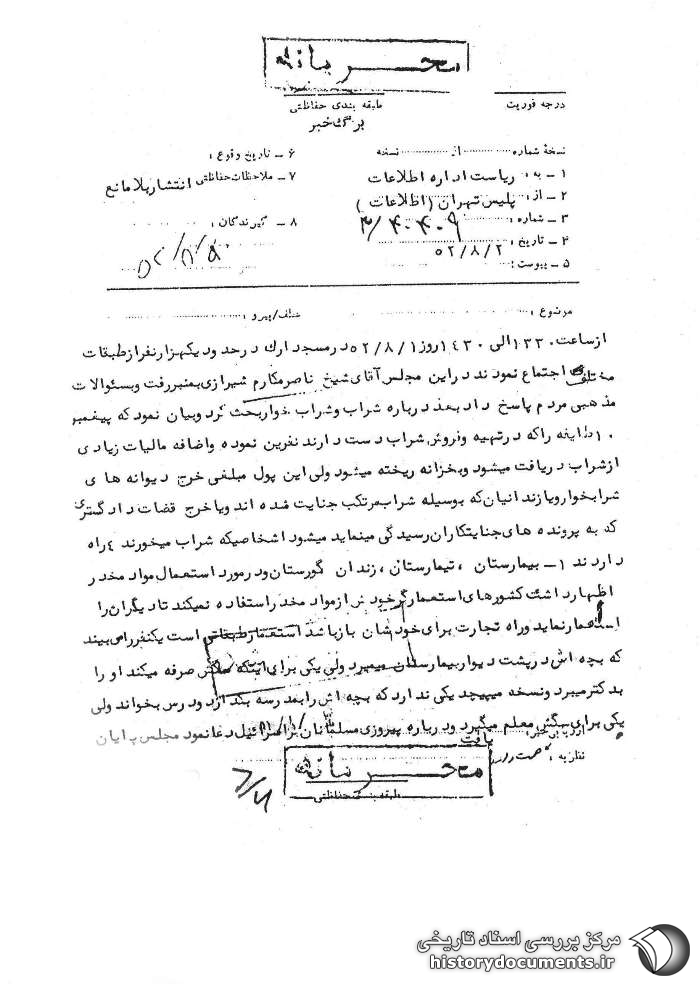 محرمانه
درجه فوریت
طبقه بندی حفاظتی
برگ خبر
نسخهٔ شماره از نسخه
۱ ــ به : ریاست اداره اطلاعات
۲ ــ از : پلیس تهران (اطلاعات )
۳ ــ شماره :
۴ ــ تاریخ : ۵۲/۸/۲
۵ ــ پیوست :
۶ ــ تاریخ وقوع :
۷ ــ ملاحظات حفاظتی انتشار بلامانع
۸ ــ گیرندگان :
موضوع : عطف/پیرو :
از ساعت ۱۳۳۰ الی ۱۴۳۰ روز ۵۲/۸/۱ در مسجد ارك در حدود یکهزار نفر از طبقات
مختلف اجتماع نمودند در این مجلس آقای شیخ ناصر مکارم شیرازی بمنبر رفت و بسئوالات
مذهبی مردم پاسخ داد بعد درباره شراب و شراب خوار بحث کرد و بیان نمود که پیغمبر
۱۰ طایفه را که در تهیه و فروش شراب دست دارند نفرین نموده و اضافه مالیات زیادی
از شراب دریافت میشود و بخزانه ریخته میشود ولی این پول مبلغی خرج دیوانه های
شرابخوار و یا زندانیان که بوسیله شراب مرتکب جنایت شده اند و یا خرج قضات دادگستری
که به پرونده های جنایتکاران رسیدگی مینماید میشود اشخاصیکه شراب میخورند ٤ راه
دارند ۱ ــ بیمارستان ، تیمارستان ، زندان گورستان و در مورد استعمال مواد مخدر
اظهار داشت کشورهای استعمارگر خودش از مواد مخدر استفاده نمیکند تا دیگران را
استعمار نماید و راه تجارت برای خودشان باز باشد استعمار طبقاتی است یکنفر را می بیند
که بچه اش در پشت دیوار بیمارستان میمیرد ولی یکی برای اینکه سگش صرفه میکند او را
بدکتر میبرد و نسخه میپیچد یکی ندارد که بچه اش را بمدرسه بگذارد و درس بخواند ولی
یکی برای سگش معلم میگیرد و درباره پیروزی مسلمانان بر اسرائیل دعا نمود مجلس پایان
یافت
نظریه :
محرمانه
طبقه بندی حفاظتی
مرکز بررسی اسناد تاریخی
historydocuments.ir